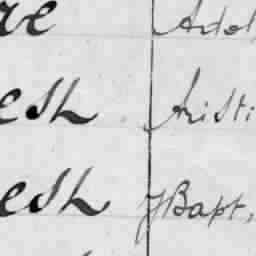 re Adol
esh Aristi
esh JBapt,